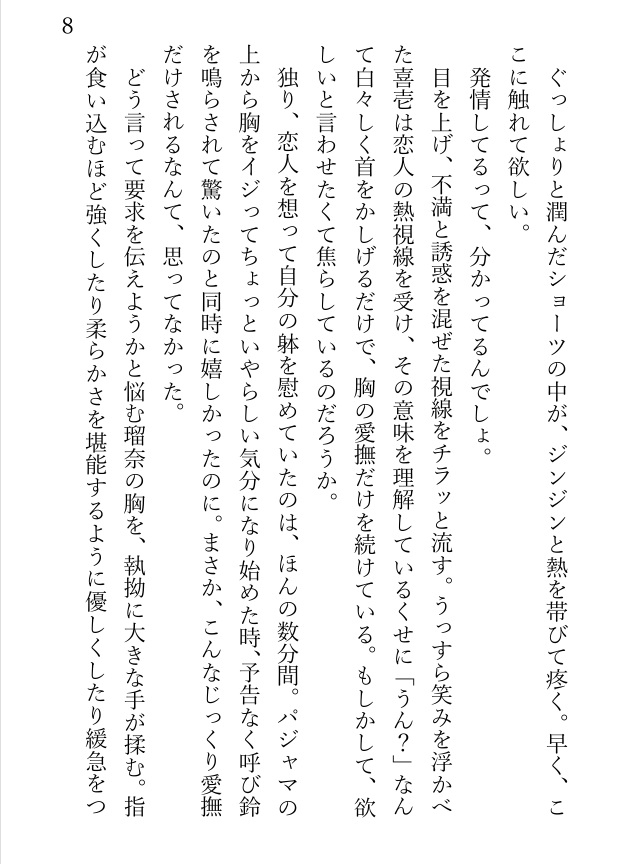 8
ぐっしょりと潤んだショーツの中が、ジンジンと熱を帯びて疼く。早く、こ
こに触れて欲しい。
発情してるって、分かってるんでしょ。
目を上げ、不満と誘惑を混ぜた視線をチラッと流す。うっすら笑みを浮かべ
た喜壱は恋人の熱視線を受け、その意味を理解しているくせに「うん？」なん
て白々しく首をかしげるだけで、胸の愛撫だけを続けている。もしかして、欲
しいと言わせたくて焦らしているのだろうか。
独り、恋人を想って自分の躰を慰めていたのは、ほんの数分間。パジャマの
上から胸をイジってちょっといやらしい気分になり始めた時、予告なく呼び鈴
を鳴らされて驚いたのと同時に嬉しかったのに。まさか、こんなじっくり愛撫
だけされるなんて、思ってなかった。
どう言って要求を伝えようかと悩む瑠奈の胸を、執拗に大きな手が揉む。指
が食い込むほど強くしたり柔らかさを堪能するように優しくしたり緩急をつ